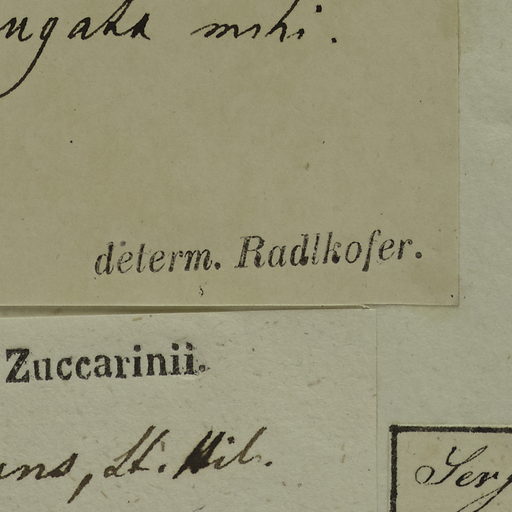 ugata mihi.
determ. Radlkofer.
Zuccarinii.
ans, St. Hil.
Serj